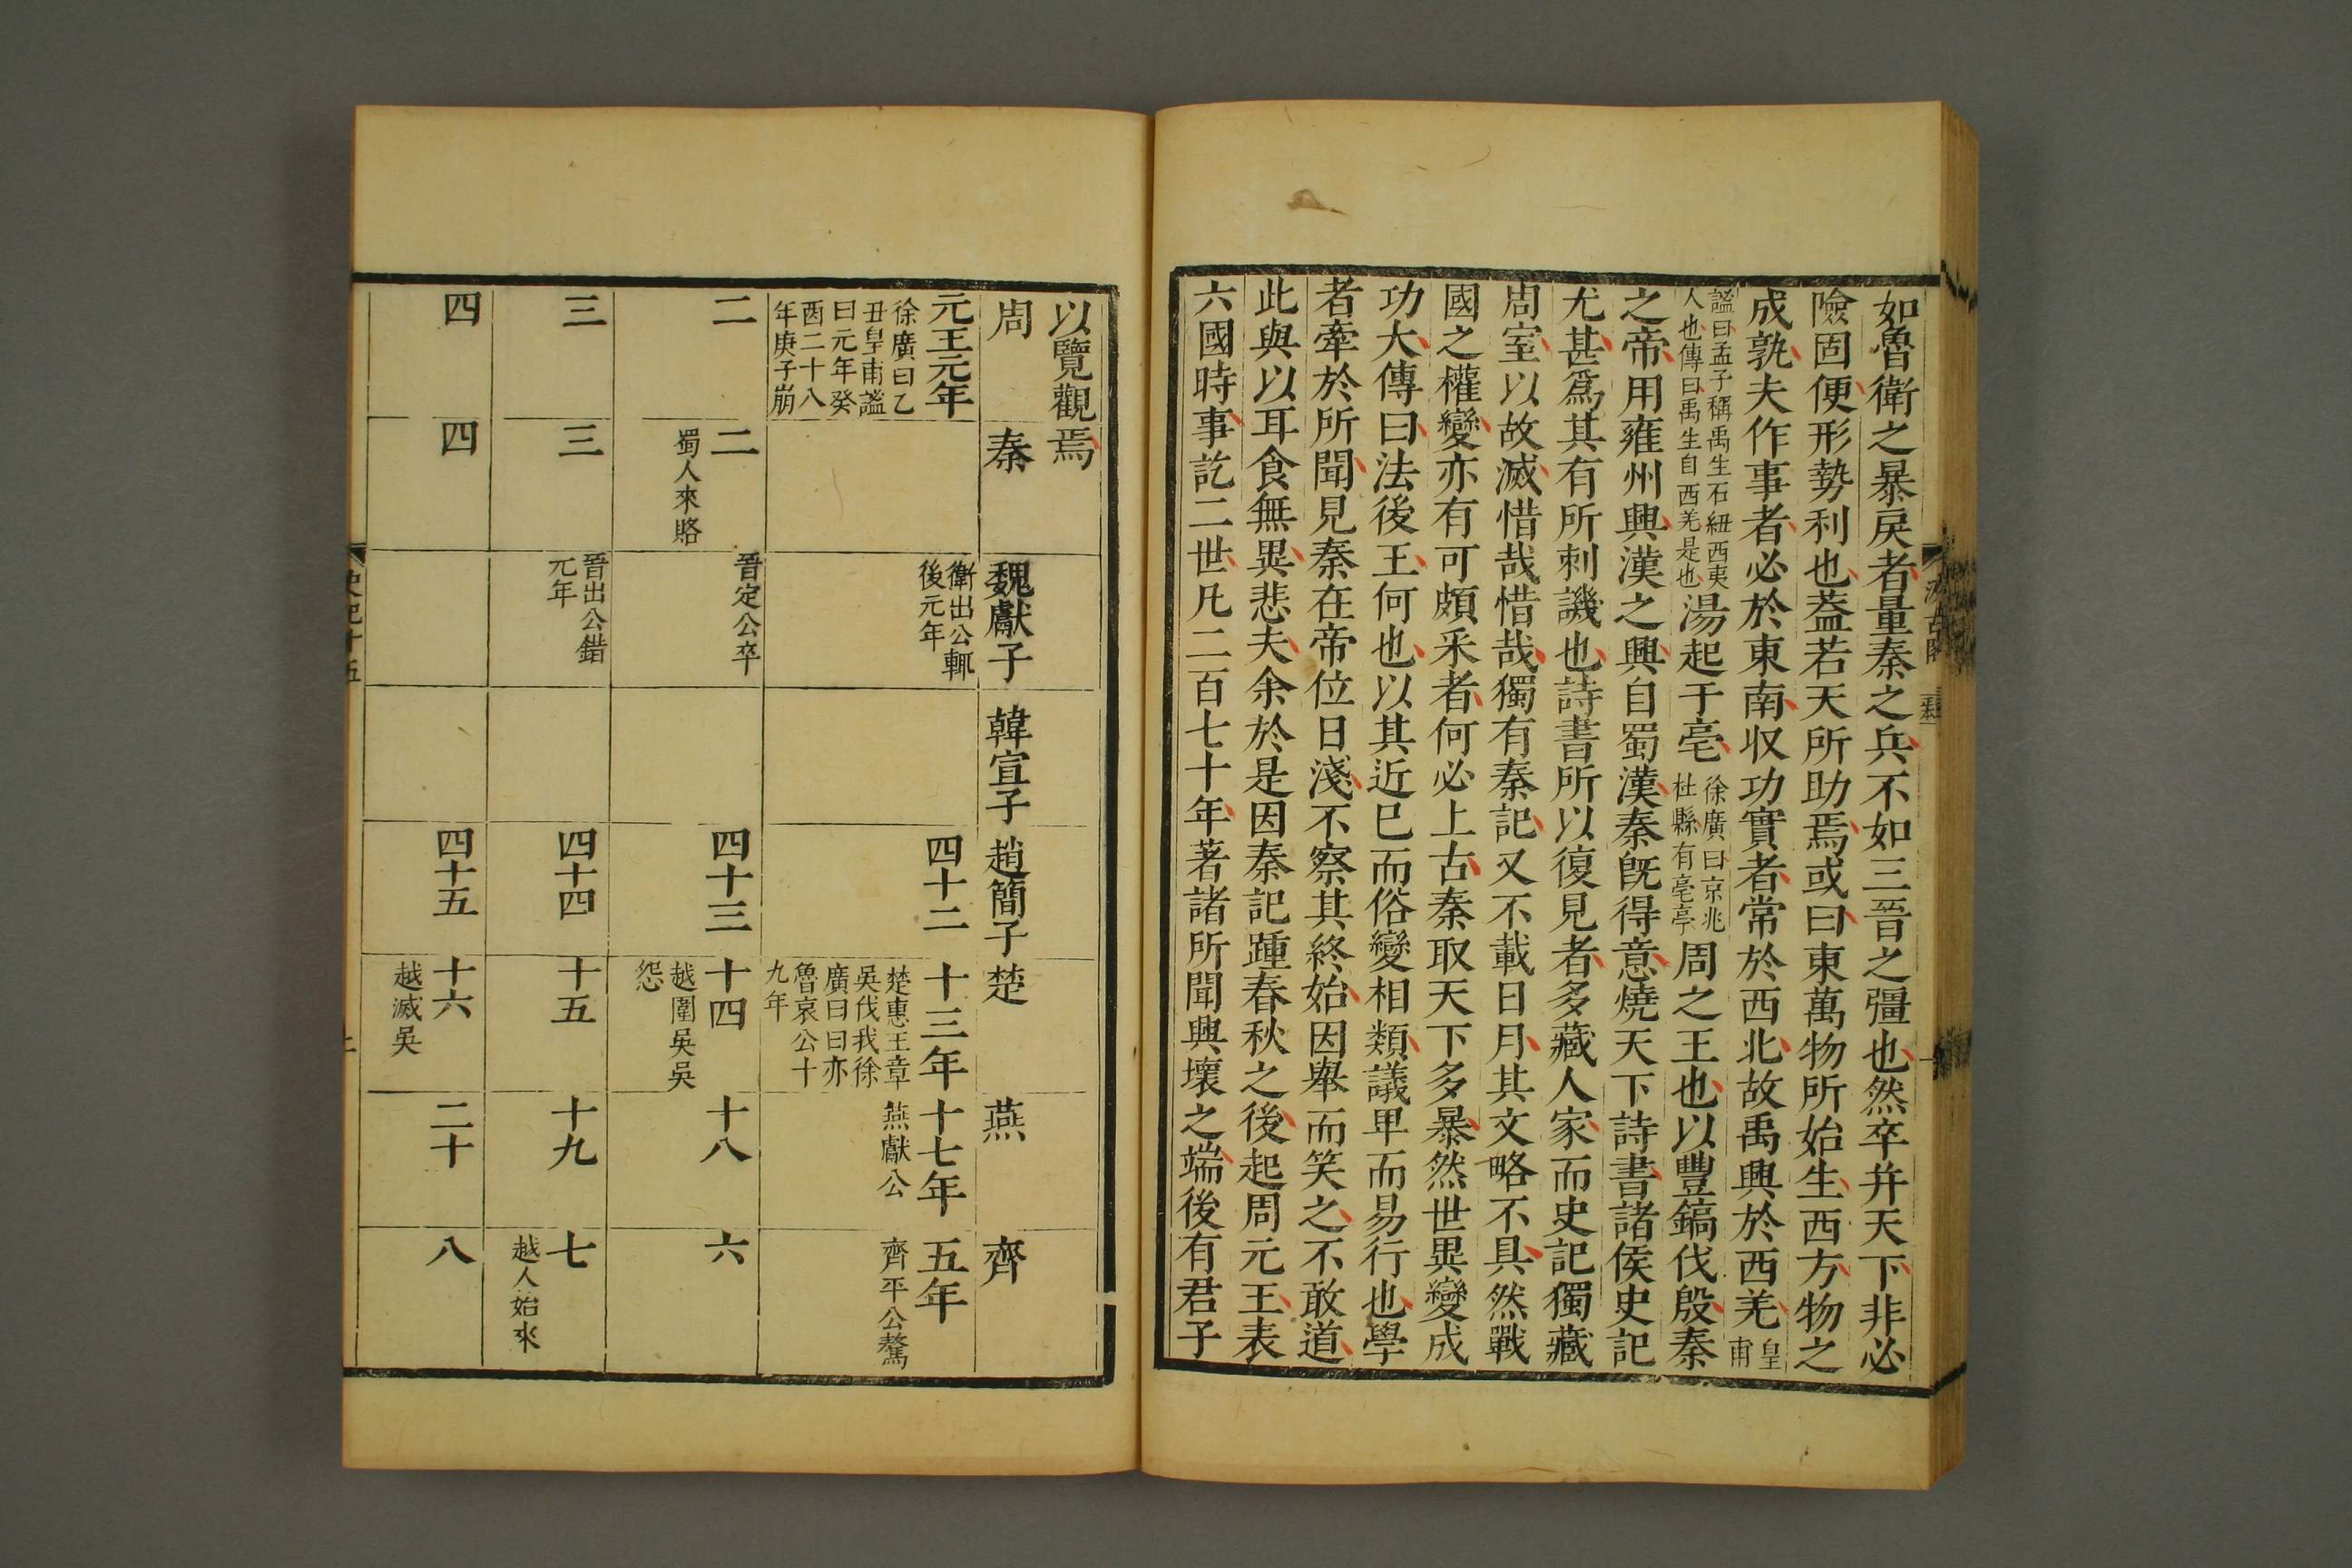 如魯衛之暴戾者量秦之兵不如三晉之彊也然卒幷天下非必
險固便形勢利也蓋若天所助焉或曰東萬物所始生西方物之
成孰夫作事者必於東南収功實者常於西北故禹興於西羌皇甫
謐曰孟子稱禹生石紐西夷人也傳曰禹生自西羌是也湯起于亳徐廣曰京兆杜縣有亳亭周之王也以豐鎬伐殷秦
之帝用雍州興漢之興自蜀漢秦旣得意燒天下詩書諸侯史記
尤甚爲其有所刺譏也詩書所以復見者多藏人家而史記獨藏
周室以故滅惜哉惜哉獨有秦記又不載日月其文略不具然戰
國之權變亦有可頗采者何必上古秦取天下多暴然世異變成
功大傳曰法後王何也以其近已而俗變相類議卑而易行也學
者牽於所聞見秦在帝位日淺不察其終始因舉而笑之不敢道
此與以耳食無異悲夫余於是因秦記踵春秋之後起周元王表
六國時事訖二世凡二百七十年著諸所聞興壞之端後有君子
以覽觀焉
周 秦 魏獻子 韓宣子 趙簡子 楚 燕 齊
元王元年
徐廣曰乙
丑皇甫謐
曰元年癸
酉二十八
年庚子崩
衛出公輒
後元年
四十二
十三年
楚惠王章
吳伐我徐
廣曰曰亦
魯哀公十
九年
十七年
燕獻公
五年
齊平公驁
二
二
蜀人來賂
晉定公卒
四十三
十四
越圍吳吳
怨
十八
六
三
三
晉出公錯
元年
四十四
十五
十九
七
越人始來
四
四
四十五
十六
越滅吳
二十
八
史記十五